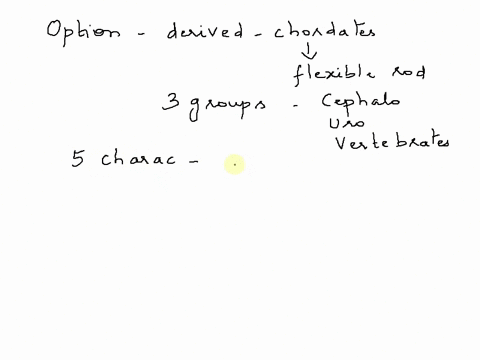 Option - derived - chordates
flexible rod
3 groups - Cephalo
Uro
Vertebrates
5 charac -